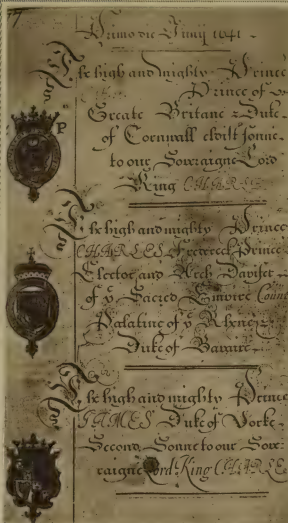 Primo die Junij 1641
The high and mighty Prince
Prince of
Greate Britane Duke
of Cornwall eldist sonne
to our Soveraigne Lord
King CHARLES
P
The high and mighty Prince
CHARLES Prince
Elector and Arch
of yͤ Sacred Empire Count
Palatine of yͤ Rhene &
Duke of Bavaire
The high and mighty Prince
JAMES Duke of Yorke
Second Sonne to our Sove
raigne Lord King CHARLES